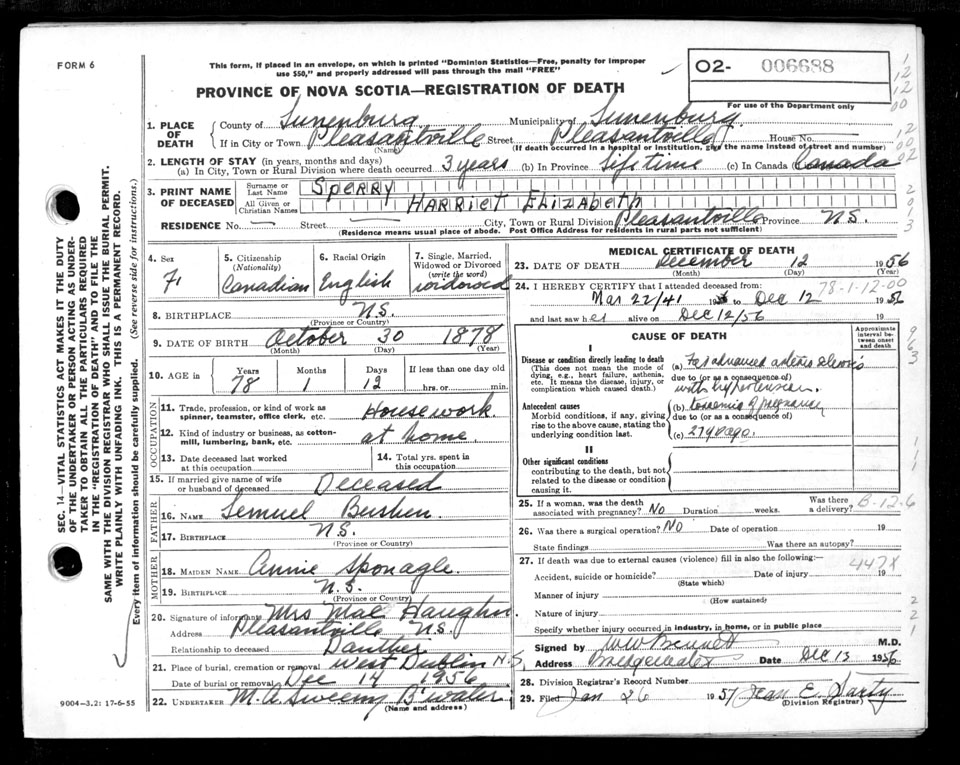 FORM 6
This form, if placed in an envelope, on which is printed "Dominion Statistics—Free, penalty for improper
use $50," and properly addressed will pass through the mail "FREE"
O2- 006688
PROVINCE OF NOVA SCOTIA—REGISTRATION OF DEATH
For use of the Department only
1. PLACE OF DEATH
County of Lunenburg Municipality of Lunenburg
If in City or Town Pleasantville Street Pleasantville House No.
(Name) (If death occurred in a hospital or institution, give the name instead of street and number)
2. LENGTH OF STAY (in years, months and days)
(a) In City, Town or Rural Division where death occurred 3 years (b) In Province Lifetime (c) In Canada Canada
3. PRINT NAME OF DECEASED
Surname or Last Name SPERRY
All Given or Christian Names HARRIET ELIZABETH
RESIDENCE No. Street City, Town or Rural Division Pleasantville Province N.S.
(Residence means usual place of abode. Post Office Address for residents in rural parts not sufficient)
4. Sex F
5. Citizenship (Nationality) Canadian
6. Racial Origin English
7. Single, Married, Widowed or Divorced (write the word) widowed
8. BIRTHPLACE N.S.
(Province or Country)
9. DATE OF BIRTH October 30 1878
(Month) (Day) (Year)
10. AGE in Years 78 Months 1 Days 12 If less than one day old hrs. or min.
OCCUPATION
11. Trade, profession, or kind of work as spinner, teamster, office clerk, etc. Housework
12. Kind of industry or business, as cotton-mill, lumbering, bank, etc. at home
13. Date deceased last worked at this occupation
14. Total yrs. spent in this occupation
15. If married give name of wife or husband of deceased Deceased
FATHER
16. NAME Lemuel
17. BIRTHPLACE N.S.
(Province or Country)
MOTHER
18. MAIDEN NAME Annie Sponagle
19. BIRTHPLACE N.S.
(Province or Country)
20. Signature of informant Mrs Mae Haughn
Address Pleasantville N.S.
Relationship to deceased Daughter
21. Place of burial, cremation or removal West Dublin N.S.
Date of burial or removal Dec 14 1956
22. UNDERTAKER M. A. Sweeny B'water
(Name and address)
9004-3,2: 17-6-55
MEDICAL CERTIFICATE OF DEATH
23. DATE OF DEATH December 12 1956
(Month) (Day) (Year)
24. I HEREBY CERTIFY that I attended deceased from: 78-1-12-00
Mar 22/41 19 to Dec 12 1956
and last saw her alive on Dec 12/56 19
CAUSE OF DEATH
Approximate interval between onset and death
I
Disease or condition directly leading to death
(This does not mean the mode of dying, e.g., heart failure, asthenia, etc. It means the disease, injury, or complication which caused death.)
(a) Far advanced
due to (or as a consequence of)
with hypertension.
Antecedent causes
Morbid conditions, if any, giving rise to the above cause, stating the underlying condition last.
(b) toxaemia of pregnancy
due to (or as a consequence of)
(c) 27 y ago.
II
Other significant conditions
contributing to the death, but not related to the disease or condition causing it.
25. If a woman, was the death associated with pregnancy? No Duration weeks. Was there a delivery? B-12-6
26. Was there a surgical operation? No Date of operation 19
State findings Was there an autopsy?
27. If death was due to external causes (violence) fill in also the following:—
447X
Accident, suicide or homicide? Date of injury 19
(State which)
Manner of injury
(How sustained)
Nature of injury
Specify whether injury occurred in industry, in home, or in public place
Signed by W W Bennett M.D.
Address Bridgewater Date Dec 13 1956
28. Division Registrar's Record Number
29. Filed Jan 26 1957 Jean E.
(Division Registrar)
SEC. 14—VITAL STATISTICS ACT MAKES IT THE DUTY
OF THE UNDERTAKER OR PERSON ACTING AS UNDER-
TAKER TO OBTAIN ALL THE PARTICULARS REQUIRED
IN THE "REGISTRATION OF DEATH" AND TO FILE THE
SAME WITH THE DIVISION REGISTRAR WHO SHALL ISSUE THE BURIAL PERMIT.
WRITE PLAINLY WITH UNFADING INK. THIS IS A PERMANENT RECORD.
Every item of information should be carefully supplied. (See reverse side for instructions.)